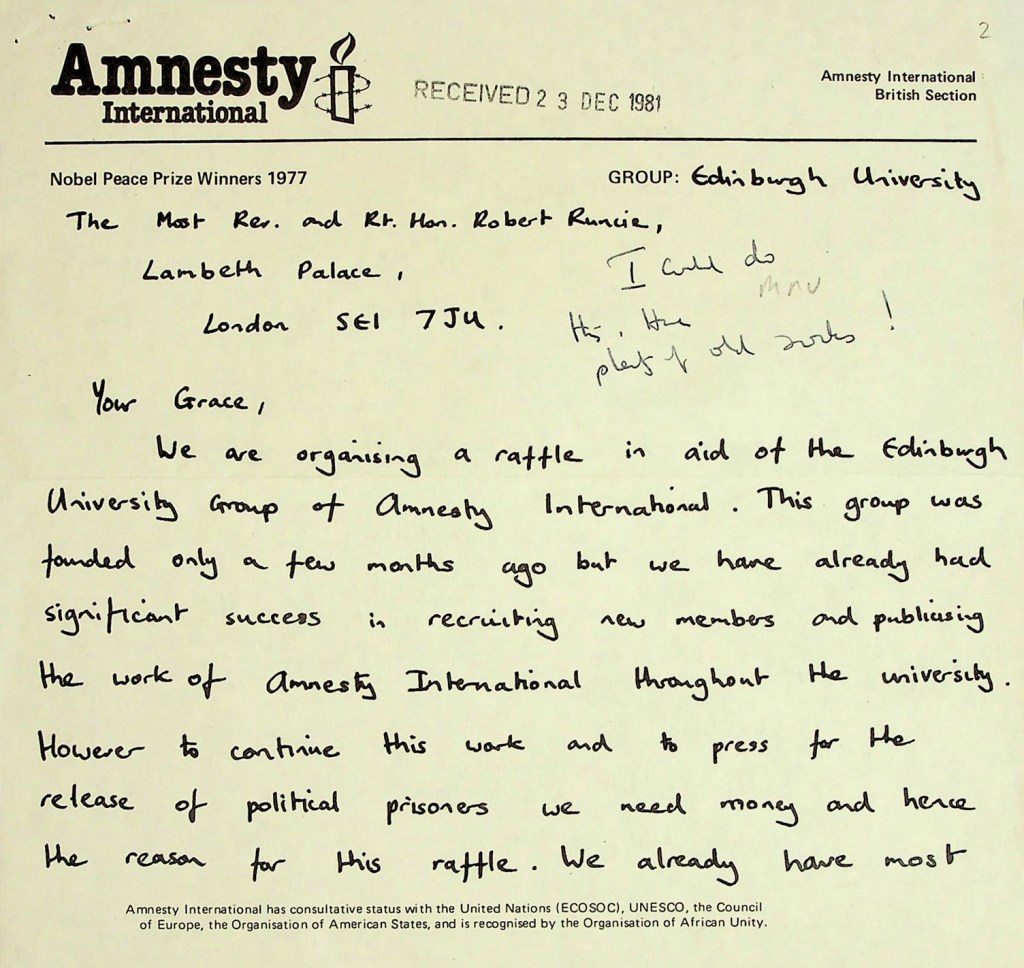 2
Amnesty
International
RECEIVED 23 DEC 1981
Amnesty International
British Section
Nobel Peace Prize Winners 1977
GROUP: Edinburgh University
The Most Rev. and Rt. Hon. Robert Runcie,
Lambeth Palace,
London SE1 7JU.
I could do
this. Have
plenty of old socks!
Your Grace,
We are organising a raffle in aid of the Edinburgh
University Group of Amnesty International. This group was
founded only a few months ago but we have already had
significant success in recruiting new members and publicising
the work of Amnesty International throughout the university.
However to continue this work and to press for the
release of political prisoners we need money and hence
the reason for this raffle. We already have most
Amnesty International has consultative status with the United Nations (ECOSOC), UNESCO, the Council
of Europe, the Organisation of American States, and is recognised by the Organisation of African Unity.